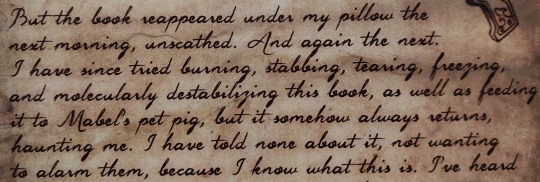 But the book reappeared under my pillow the
next morning, unscathed. And again the next.
I have since tried burning, stabbing, tearing, freezing,
and molecularly destabilizing this book, as well as feeding
it to Mabel's pet pig, but it somehow always returns,
haunting me. I have told none about it, not wanting
to alarm them, because I know what this is. I've heard